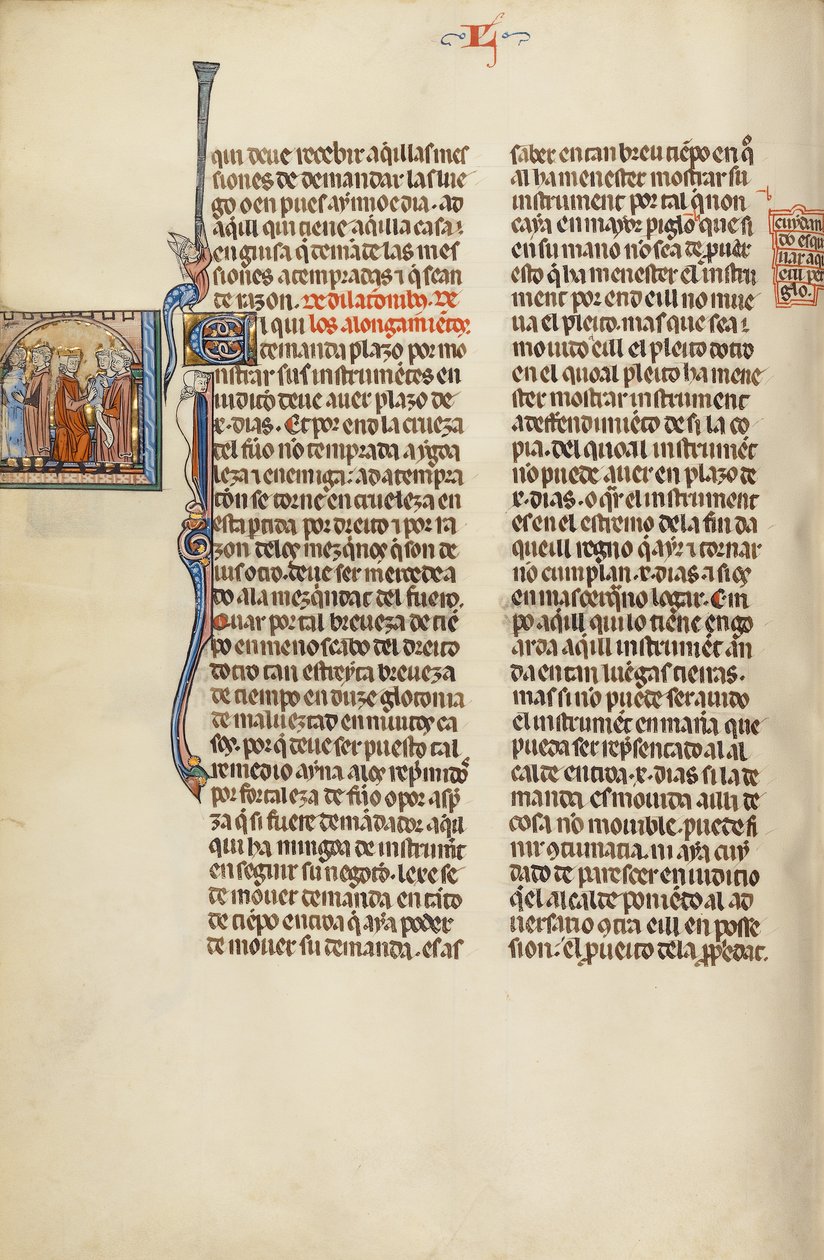 L
qui deue recebir aq̃illas mes
siones de demandar las lue
go o en pues aỹ mooe dia. ad
aq̃ill qui tiene aq̃illa casa ⁊
en guisa q̃ demãde las mes
siones atempradas ⁊ q̃ sean
de rizon. De dilatõibꝰ. De
Si qui los alongamiẽtos
demanda plazo por mo
nstrar sus instrumẽtes en
iudicio deue auer plazo de
x. dias. Et por end la crueza
del fũo nõ temprada aỹgoa
leza ⁊ enemiga: ad atempra
cõn se torne en crueleza en
esta ptida por dreito ⁊ por ra
zon de los mezq̃nos q̃ son de
iuso dito. deue ser mercede a
do a la mezq̃ndat del fuero.
Quar por tal breueza de tiẽ
po en menoscabo del dreito
dotro tan estreyta breueza
de tiempo enduze glotonia
de maluezdad en muitos ca
sos. por q̃ deue ser puesto tal
remedio ayna a los rep̃midos
por fortaleza de fũo o por asp̃
za q̃ si fuere demãdador aq̃ill
qui ha mingoa de instrumẽt
en seguir su negocio. lexe se
de mouer demanda en tãto
de tiẽpo entroa q̃ aya poder
de mouer su demanda. es as
saber en tan breu tiẽpo en q̃
al ha menester mostrar su
instrument por tal q̃ non
caya en mayor piglo que si
en su mano nõ sea de puar
esto q̃ ha menester el instru
ment por end eill no mue
ua el pleito. mas que sea ⁊
mouido eill el pleito dotro
en el quoal pleito ha mene
ster mostrar instrument
a deffendimiẽto de si la co
pia. del quoal instrumẽt
nõ puede auer en plazo de
x. dias. o q̃r el instrument
es en el estremo de la fin da
queill regno q̃ aỹr ⁊ tornar
nõ cumplan .x. dias a si os
en mas cerq̃no logar. Cm
po aq̃ill qui lo tiene en go
arda aq̃ill instrumẽt an
da en tan luẽgas tierras.
mas si nõ puede ser auido
el instrumẽt en mañа que
pueda ser rep̃sentado al al
calde entroa .x. dias si la de
manda es mouida ailli de
cosa nõ mouible. puede fi
nir ꝯtumatia. ni aya cuy
dado de parescer en iudicio
q̃ el alcalde poniẽdo al ad
uersario ꝯtra eill en posse
sion. el p̃ueito de la p̃p̃edat.
cuydan
do esqui
uar aq̃
eill per
glo.